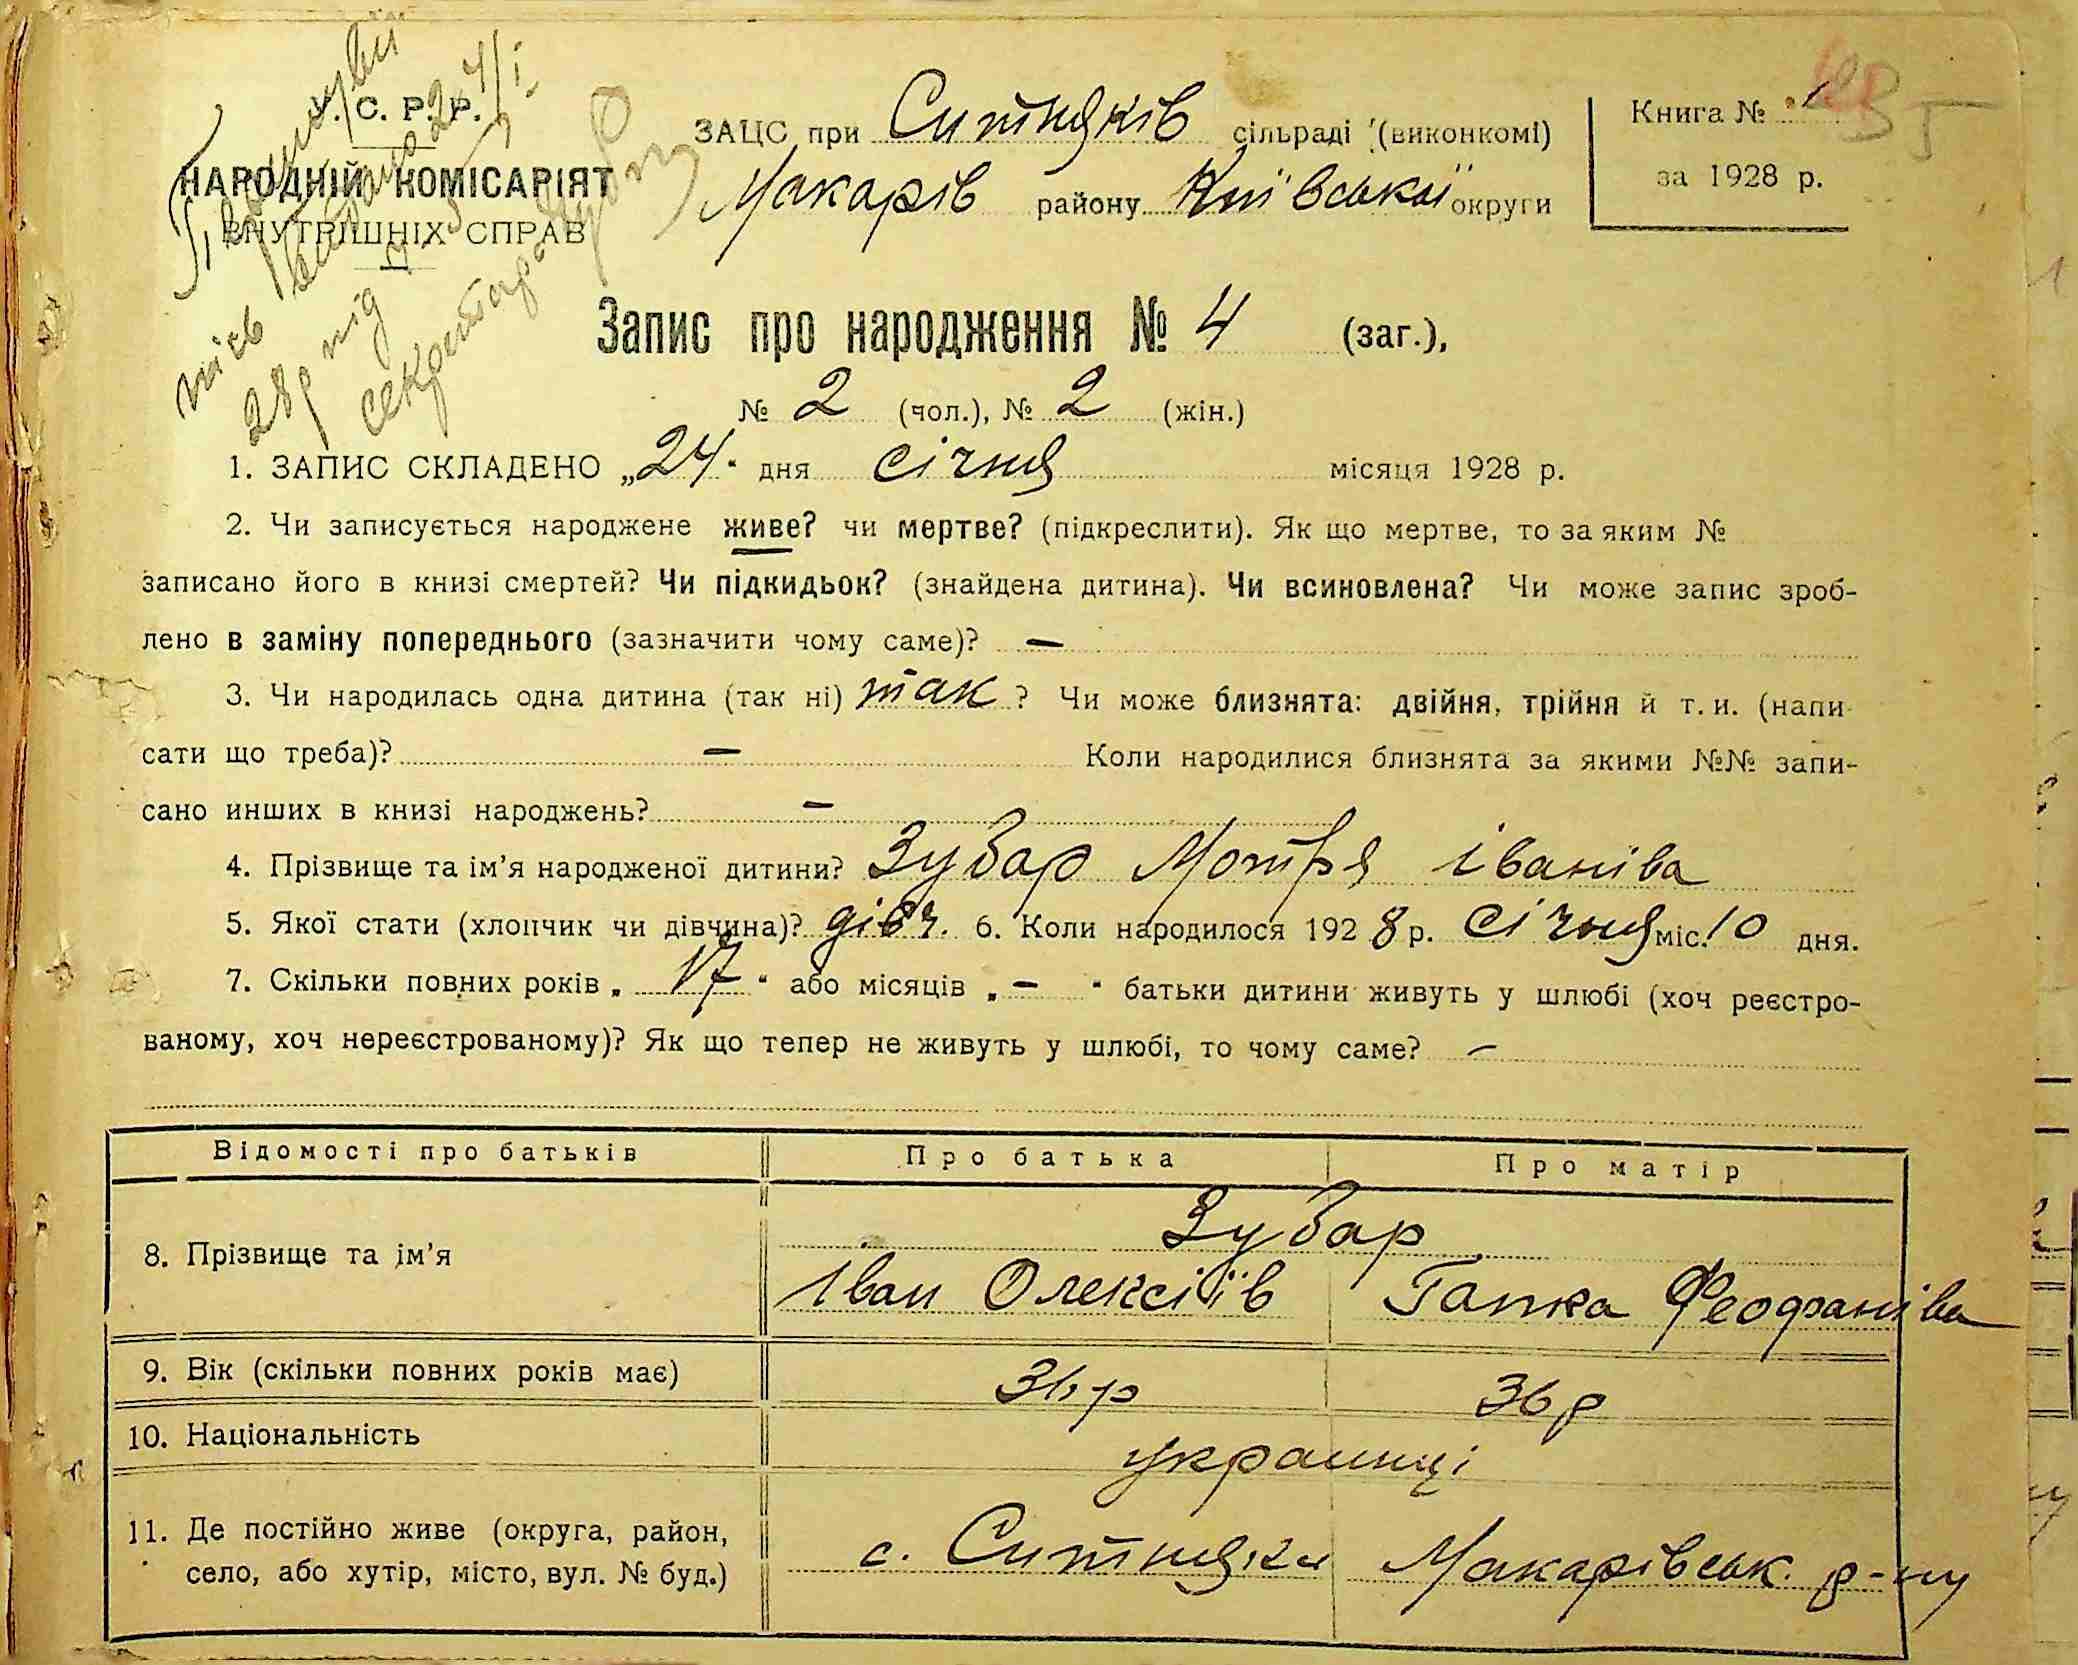 У. С. Р. Р.
НАРОДНІЙ КОМІСАРІЯТ
ВНУТРІШНІХ СПРАВ
28р під
секретар
ЗАЦС при Ситняків сільраді (виконкомі)
Макарів району Київської округи
Книга № 1
за 1928 р.
Запис про народження № 4 (заг.),
№ 2 (чол.), № 2 (жін.)
1. ЗАПИС СКЛАДЕНО „24" дня січня місяця 1928 р.
2. Чи записується народжене живе? чи мертве? (підкреслити). Як що мертве, то за яким №
записано його в книзі смертей? Чи підкидьок? (знайдена дитина). Чи всиновлена? Чи може запис зроб-
лено в заміну попереднього (зазначити чому саме)? —
3. Чи народилась одна дитина (так ні) так ? Чи може близнята: двійня, трійня й т. и. (напи-
сати що треба)? — Коли народилися близнята за якими №№ запи-
сано инших в книзі народжень? —
4. Прізвище та ім'я народженої дитини? Зубар Мотря Іваніва
5. Якої стати (хлопчик чи дівчина)? дівч. 6. Коли народилося 1928 р. січня міс. 10 дня.
7. Скільки повних років „ 17 " або місяців „ — " батьки дитини живуть у шлюбі (хоч реєстро-
ваному, хоч нереєстрованому)? Як що тепер не живуть у шлюбі, то чому саме? —
Відомості про батьків Про батька Про матір
8. Прізвище та ім'я Зубар
Іван Олексіїв Гапка Феофаніва
9. Вік (скільки повних років має) 36 р 36 р
10. Національність украинці
11. Де постійно живе (округа, район,
село, або хутір, місто, вул. № буд.)
с. Ситняки Макарівськ. р-ну